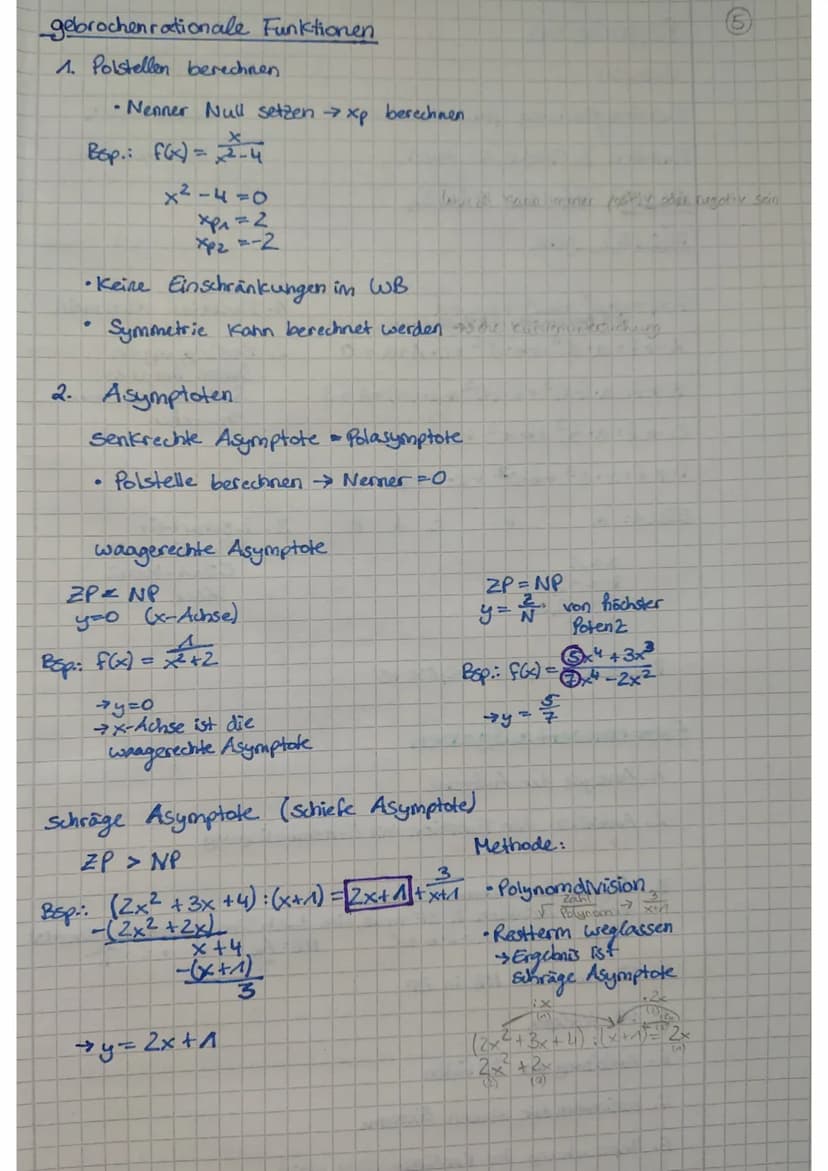 gebrochenrationale Funktionen
5
1. Polstellen berechnen
• Nenner Null setzen → xp berechnen
Bsp.: f(x) = x/(x² - 4)
x² - 4 = 0
xp1 = 2
xp2 = -2
• Keine Einschränkungen im WB
• Symmetrie kann berechnet werden
2. Asymptoten
senkrechte Asymptote = Polasymptote
• Polstelle berechnen → Nenner = 0
waagerechte Asymptote
ZP < NP
y=0 (x-Achse)
Bsp.: f(x) = 1/(x²+2)
→ y=0
→ x-Achse ist die
waagerechte Asymptote
ZP = NP
y = Z/N von höchster
Potenz
Bsp.: f(x) = (5x⁴ + 3x³)/(7x⁴ - 2x²)
→ y = 5/7
schräge Asymptote (schiefe Asymptote)
ZP > NP
Bsp.: (2x² + 3x + 4) : (x+1) = 2x+1 + 3/(x+1)
-(2x² + 2x)
x + 4
-(x+1)
3
→ y = 2x + 1
Methode:
• Polynomdivision
Zahl/Polynom → 3/(x+1)
• Restterm weglassen
→ Ergebnis ist
schräge Asymptote
:x ·2x
(1)
(2x² + 3x + 4) : (x+1) = 2x
(1)
2x² + 2x
(2) (3)